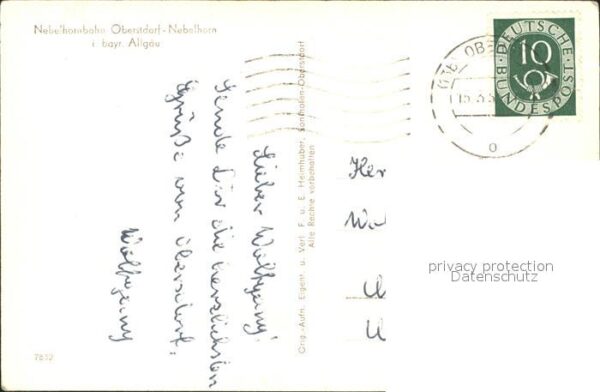 Nebelhornbahn Oberstdorf-Nebelhorn
i. bayr. Allgäu
Lieber Wolfgang!
Sende Dir die herzlichsten
Grüße von Oberstdorf.
Wolfgang
Orig.-Aufn. Eigent. u. Verl. F. u. E. Heimhuber, Sonthofen-Oberstdorf
Alle Rechte vorbehalten
7852
DEUTSCHE
BUNDESPOST
10
Her
privacy protection
Datenschutz